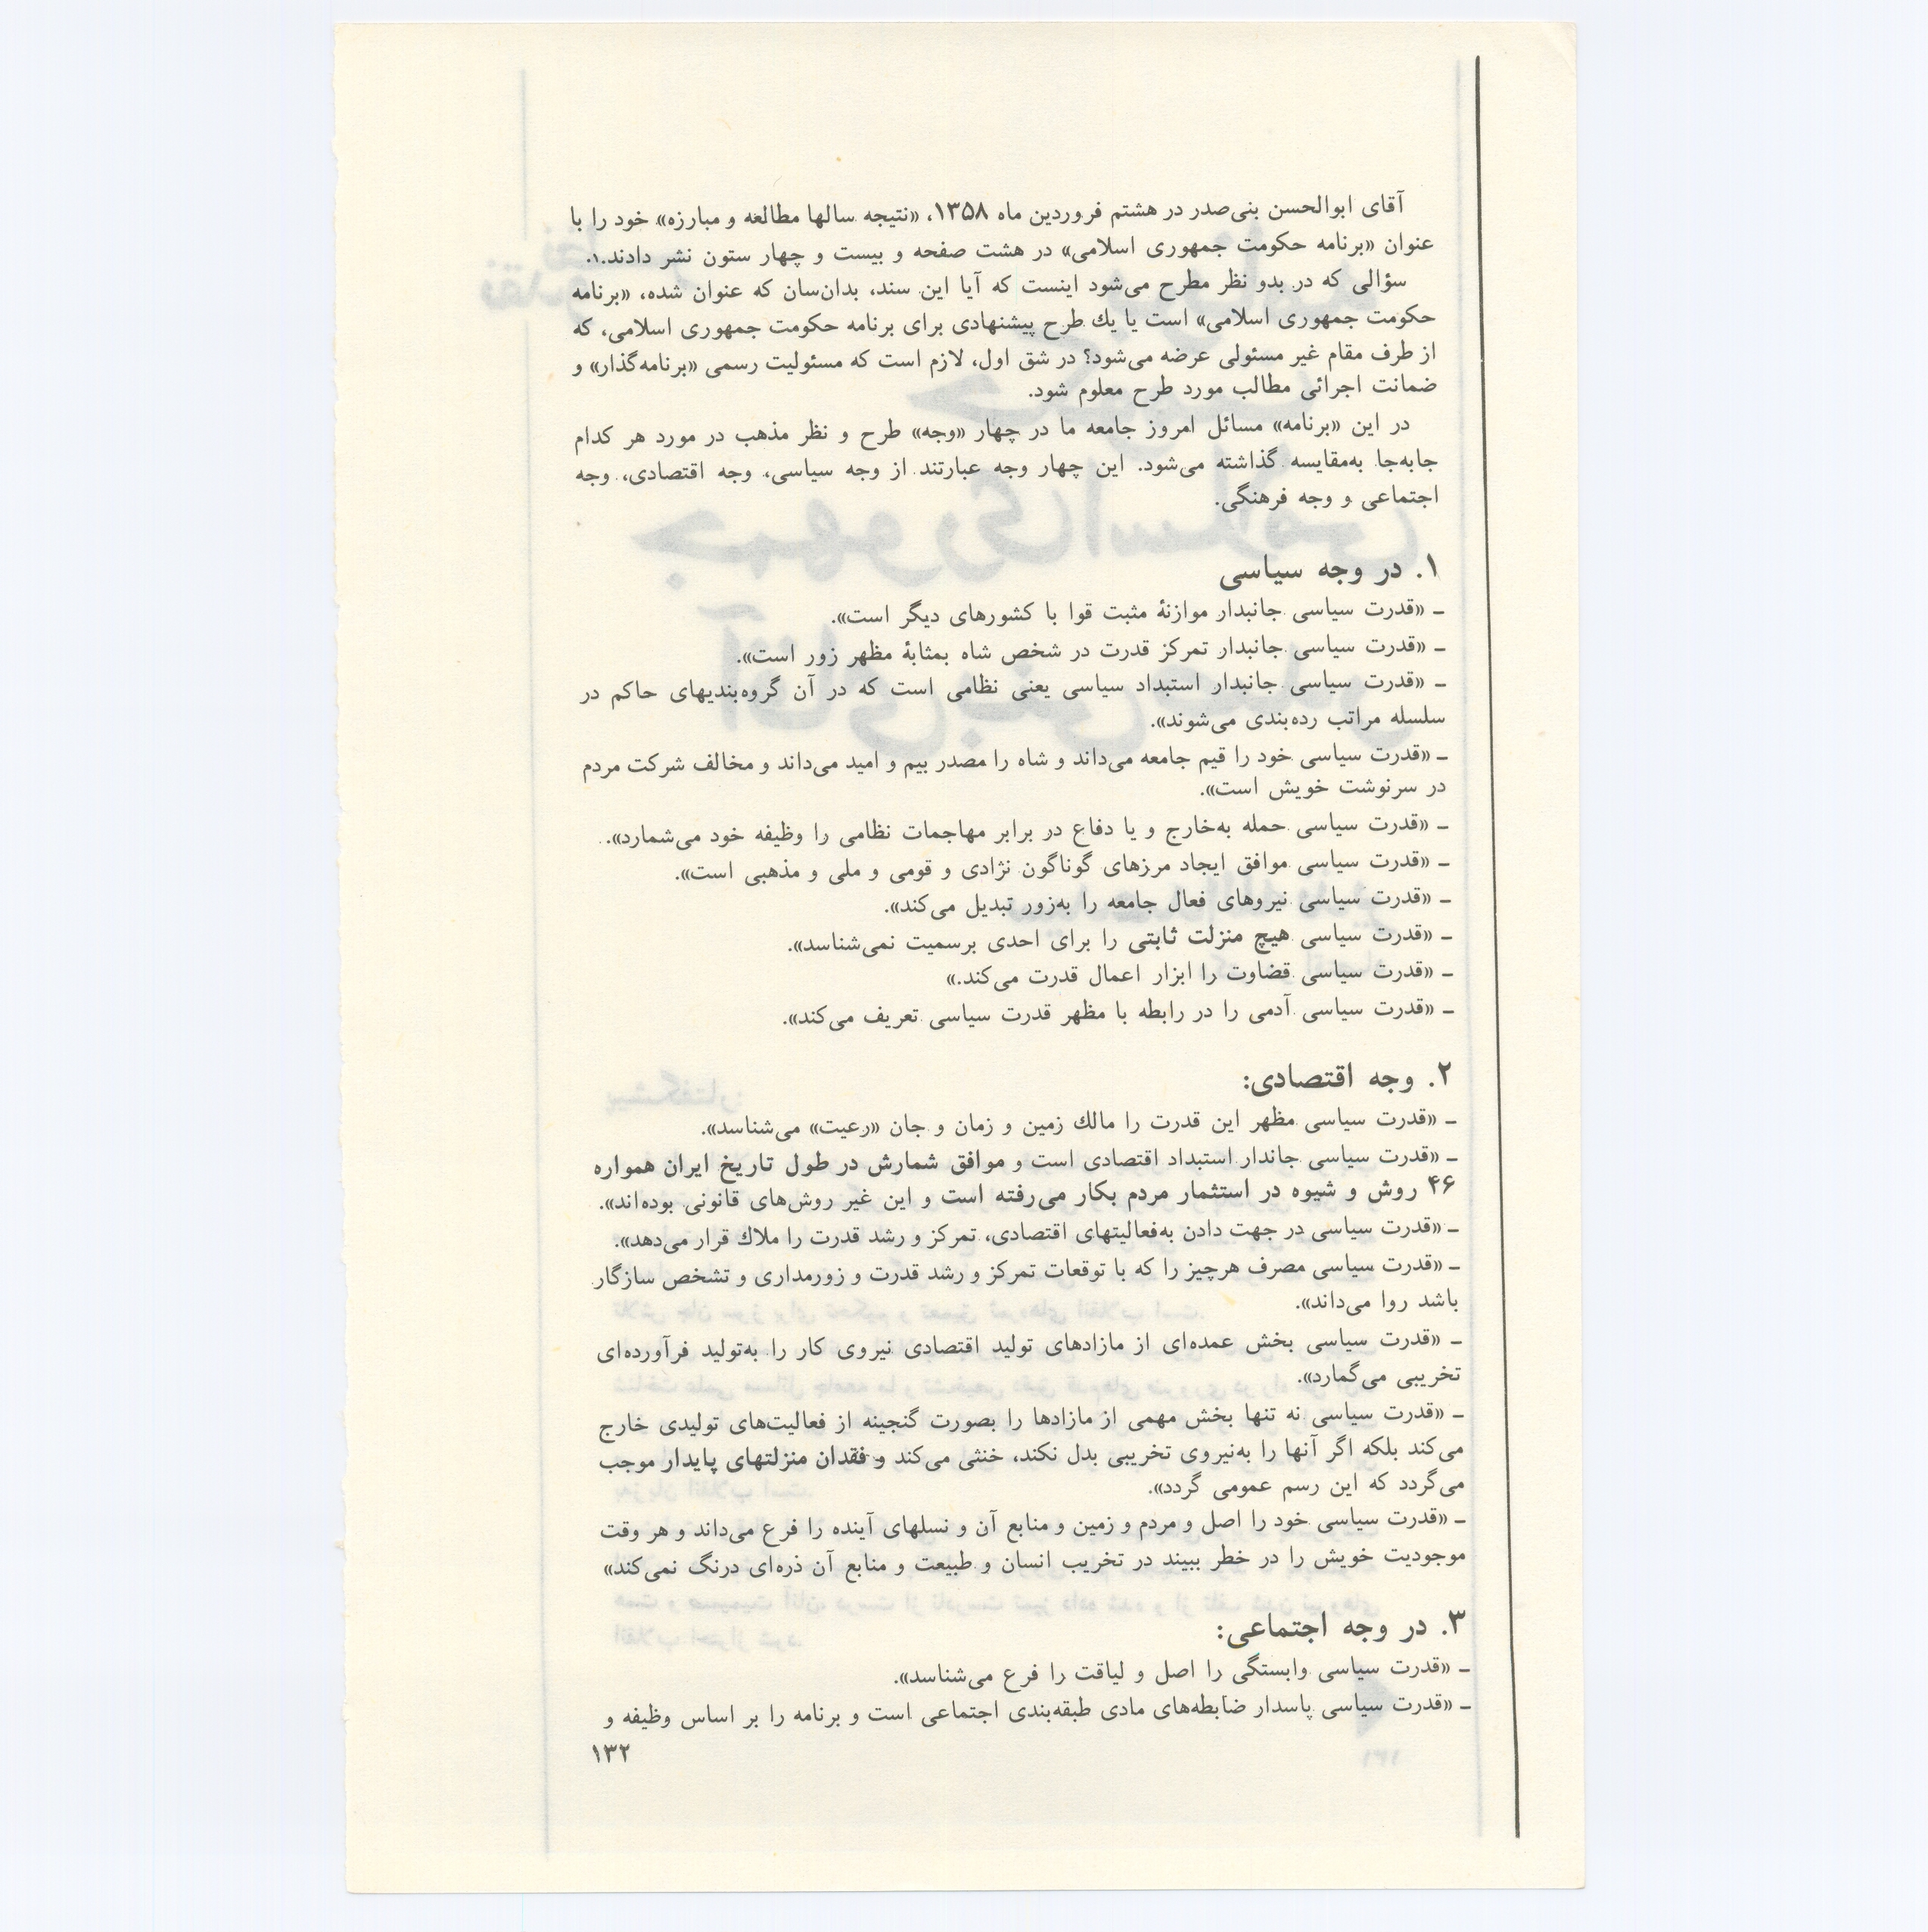 آقای ابوالحسن بنی‌صدر در هشتم فروردین ماه ۱۳۵۸، «نتیجه سالها مطالعه و مبارزه» خود را با
عنوان «برنامه حکومت جمهوری اسلامی» در هشت صفحه و بیست و چهار ستون نشر دادند.۱.
سؤالی که در بدو نظر مطرح می‌شود اینست که آیا این سند، بدان‌سان که عنوان شده، «برنامه
حکومت جمهوری اسلامی» است یا یك طرح پیشنهادی برای برنامه حکومت جمهوری اسلامی، که
از طرف مقام غیر مسئولی عرضه می‌شود؟ در شق اول، لازم است که مسئولیت رسمی «برنامه‌گذار» و
ضمانت اجرائی مطالب مورد طرح معلوم شود.
در این «برنامه» مسائل امروز جامعه ما در چهار «وجه» طرح و نظر مذهب در مورد هر کدام
جابه‌جا به‌مقایسه گذاشته می‌شود. این چهار وجه عبارتند از وجه سیاسی، وجه اقتصادی، وجه
اجتماعی و وجه فرهنگی.
۱. در وجه سیاسی
ـ «قدرت سیاسی جانبدار موازنهٔ مثبت قوا با کشورهای دیگر است».
ـ «قدرت سیاسی جانبدار تمرکز قدرت در شخص شاه بمثابهٔ مظهر زور است».
ـ «قدرت سیاسی جانبدار استبداد سیاسی یعنی نظامی است که در آن گروه‌بندیهای حاکم در
سلسله مراتب رده‌بندی می‌شوند».
ـ «قدرت سیاسی خود را قیم جامعه می‌داند و شاه را مصدر بیم و امید می‌داند و مخالف شرکت مردم
در سرنوشت خویش است».
ـ «قدرت سیاسی حمله به‌خارج و یا دفاع در برابر مهاجمات نظامی را وظیفه خود می‌شمارد».
ـ «قدرت سیاسی موافق ایجاد مرزهای گوناگون نژادی و قومی و ملی و مذهبی است».
ـ «قدرت سیاسی نیروهای فعال جامعه را به‌زور تبدیل می‌کند».
ـ «قدرت سیاسی هیچ منزلت ثابتی را برای احدی برسمیت نمی‌شناسد».
ـ «قدرت سیاسی قضاوت را ابزار اعمال قدرت می‌کند.»
ـ «قدرت سیاسی آدمی را در رابطه با مظهر قدرت سیاسی تعریف می‌کند».
۲. وجه اقتصادی:
ـ «قدرت سیاسی مظهر این قدرت را مالك زمین و زمان و جان «رعیت» می‌شناسد».
ـ «قدرت سیاسی جاندار استبداد اقتصادی است و موافق شمارش در طول تاریخ ایران همواره
۴۶ روش و شیوه در استثمار مردم بکار می‌رفته است و این غیر روش‌های قانونی بوده‌اند».
ـ «قدرت سیاسی در جهت دادن به‌فعالیتهای اقتصادی، تمرکز و رشد قدرت را ملاك قرار می‌دهد».
ـ «قدرت سیاسی مصرف هرچیز را که با توقعات تمرکز و رشد قدرت و زورمداری و تشخص سازگار
باشد روا می‌داند».
ـ «قدرت سیاسی بخش عمده‌ای از مازادهای تولید اقتصادی نیروی کار را به‌تولید فرآورده‌ای
تخریبی می‌گمارد».
ـ «قدرت سیاسی نه تنها بخش مهمی از مازادها را بصورت گنجینه از فعالیت‌های تولیدی خارج
می‌کند بلکه اگر آنها را به‌نیروی تخریبی بدل نکند، خنثی می‌کند و فقدان منزلتهای پایدار موجب
می‌گردد که این رسم عمومی گردد».
ـ «قدرت سیاسی خود را اصل و مردم و زمین و منابع آن و نسلهای آینده را فرع می‌داند و هر وقت
موجودیت خویش را در خطر ببیند در تخریب انسان و طبیعت و منابع آن ذره‌ای درنگ نمی‌کند»
۳. در وجه اجتماعی:
ـ «قدرت سیاسی وابستگی را اصل و لیاقت را فرع می‌شناسد».
ـ «قدرت سیاسی پاسدار ضابطه‌های مادی طبقه‌بندی اجتماعی است و برنامه را بر اساس وظیفه و
۱۳۲